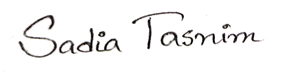 Sadia Tasnim